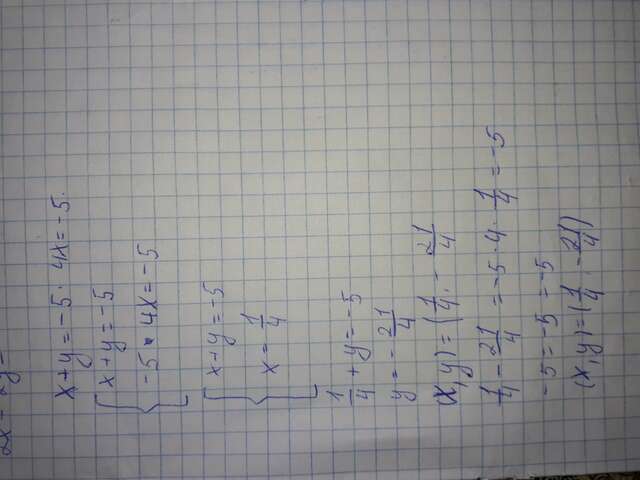 x+y=-5·4x=-5.
{x+y=-5
-5·4x=-5
{x+y=-5
x=1/4
1/4+y=-5
y=-21/4
(x,y)=(1/4,-21/4)
1/4-21/4=-5·4·1/4=-5
-5=-5=-5
(x,y)=(1/4,-21/4)